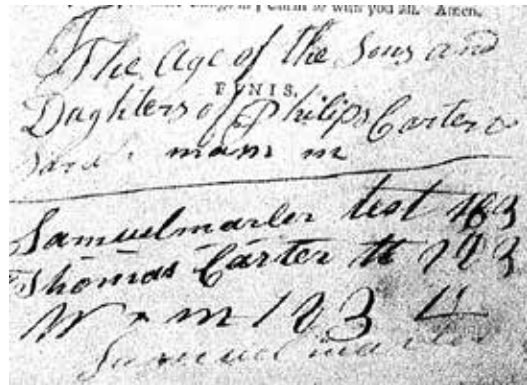 Christ be with you all. Amen.
The Age of the Sons and
FINIS.
Daghters of Philips Carter &
Sarah mann m
Samuel marler test 183
Thomas Carter tt 183
W + m 183 4
Samuel marler